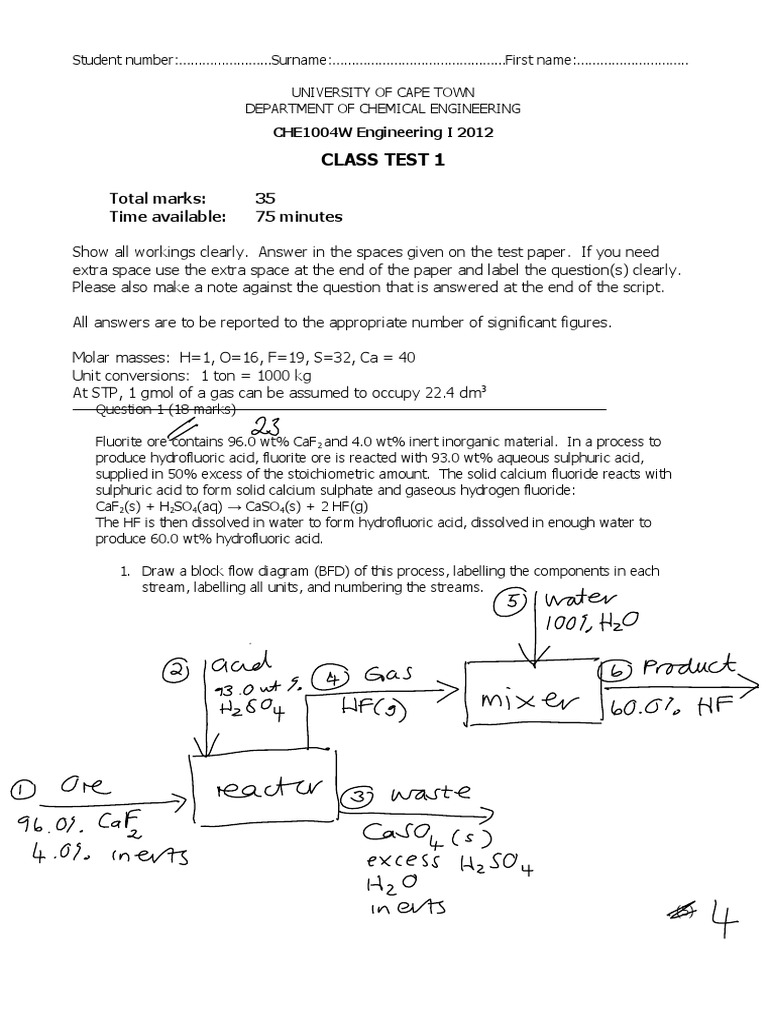 Student number:........................Surname:.............................................First name:.............................
UNIVERSITY OF CAPE TOWN
DEPARTMENT OF CHEMICAL ENGINEERING
CHE1004W Engineering I 2012
CLASS TEST 1
Total marks: 35
Time available: 75 minutes
Show all workings clearly. Answer in the spaces given on the test paper. If you need
extra space use the extra space at the end of the paper and label the question(s) clearly.
Please also make a note against the question that is answered at the end of the script.
All answers are to be reported to the appropriate number of significant figures.
Molar masses: H=1, O=16, F=19, S=32, Ca = 40
Unit conversions: 1 ton = 1000 kg
At STP, 1 gmol of a gas can be assumed to occupy 22.4 dm³
Question 1 (18 marks)
23
Fluorite ore contains 96.0 wt% CaF₂ and 4.0 wt% inert inorganic material. In a process to
produce hydrofluoric acid, fluorite ore is reacted with 93.0 wt% aqueous sulphuric acid,
supplied in 50% excess of the stoichiometric amount. The solid calcium fluoride reacts with
sulphuric acid to form solid calcium sulphate and gaseous hydrogen fluoride:
CaF₂(s) + H₂SO₄(aq) → CaSO₄(s) + 2 HF(g)
The HF is then dissolved in water to form hydrofluoric acid, dissolved in enough water to
produce 60.0 wt% hydrofluoric acid.
1. Draw a block flow diagram (BFD) of this process, labelling the components in each
stream, labelling all units, and numbering the streams.
5 water
100% H₂O
2 acid
93.0 wt%
H₂SO₄
4 Gas
HF(g)
mixer
6 Product
60.0% HF
1 Ore
96.0% CaF₂
4.0% inerts
reactor
3 waste
CaSO₄(s)
excess H₂SO₄
H₂O
inerts
4